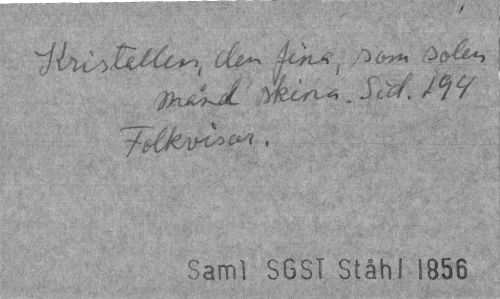 Kristallen, den fina, som solen
månd skina. Sid. 194
Folkvisor.
Saml SGST Ståhl 1856